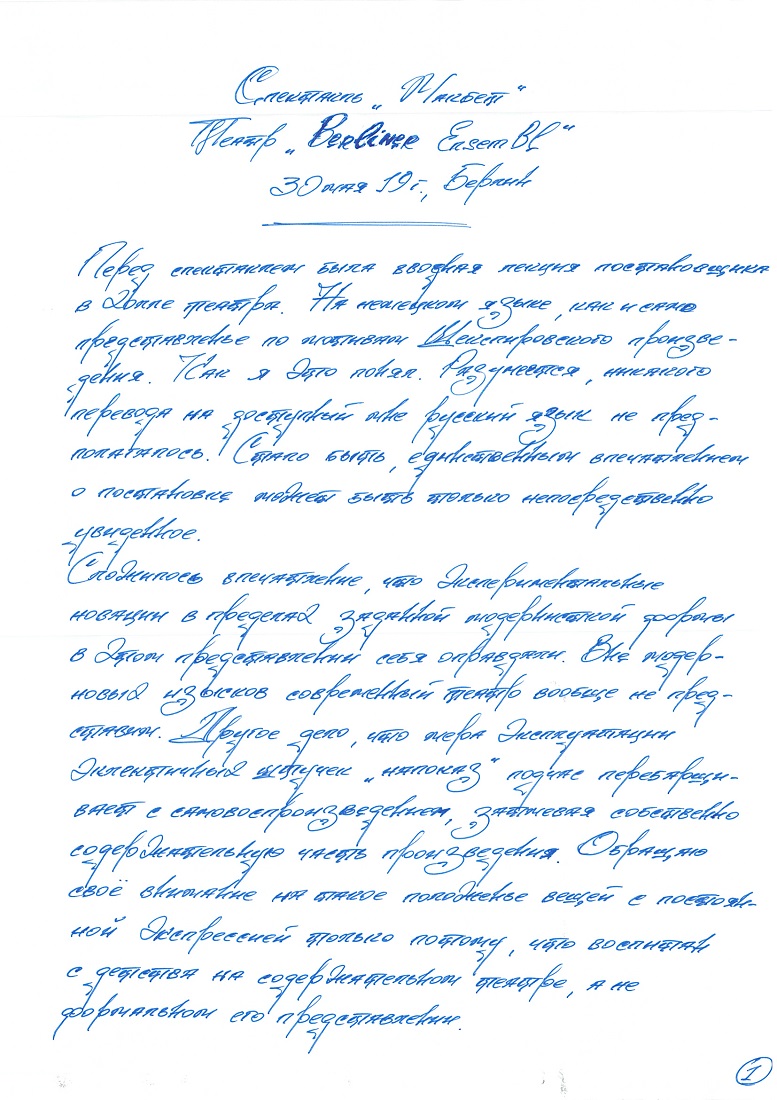 Спектакль „Макбет“
Театр „Berliner EnsemBl“
30 мая 19 г., Берлин
Перед спектаклем была вводная лекция постановщика
в холле театра. На немецком языке, как и само
представленье по мотивам Шекспировского произве-
дения. Как я это понял. Разумеется, никакого
перевода на доступный мне русский язык не пред-
полагалось. Стало быть, единственным впечатлением
о постановке может быть только непосредственно
увиденное.
Сложилось впечатление, что экспериментальные
новации в пределах заданной модернисткой формы
в этом представлении себя оправдали. Вне модер-
новых изысков современный театр вообще не пред-
ставим. Другое дело, что мера эксплуатации
эклектичных штучек „напоказ“ подчас перебарщи-
вает с самовоспроизведением, затмевая собственно
содержательную часть произведения. Обращаю
своё внимание на такое положенье вещей с постоян-
ной экспрессией только потому, что воспитан
с детства на содержательном театре, а не
формальном его представлении.
1